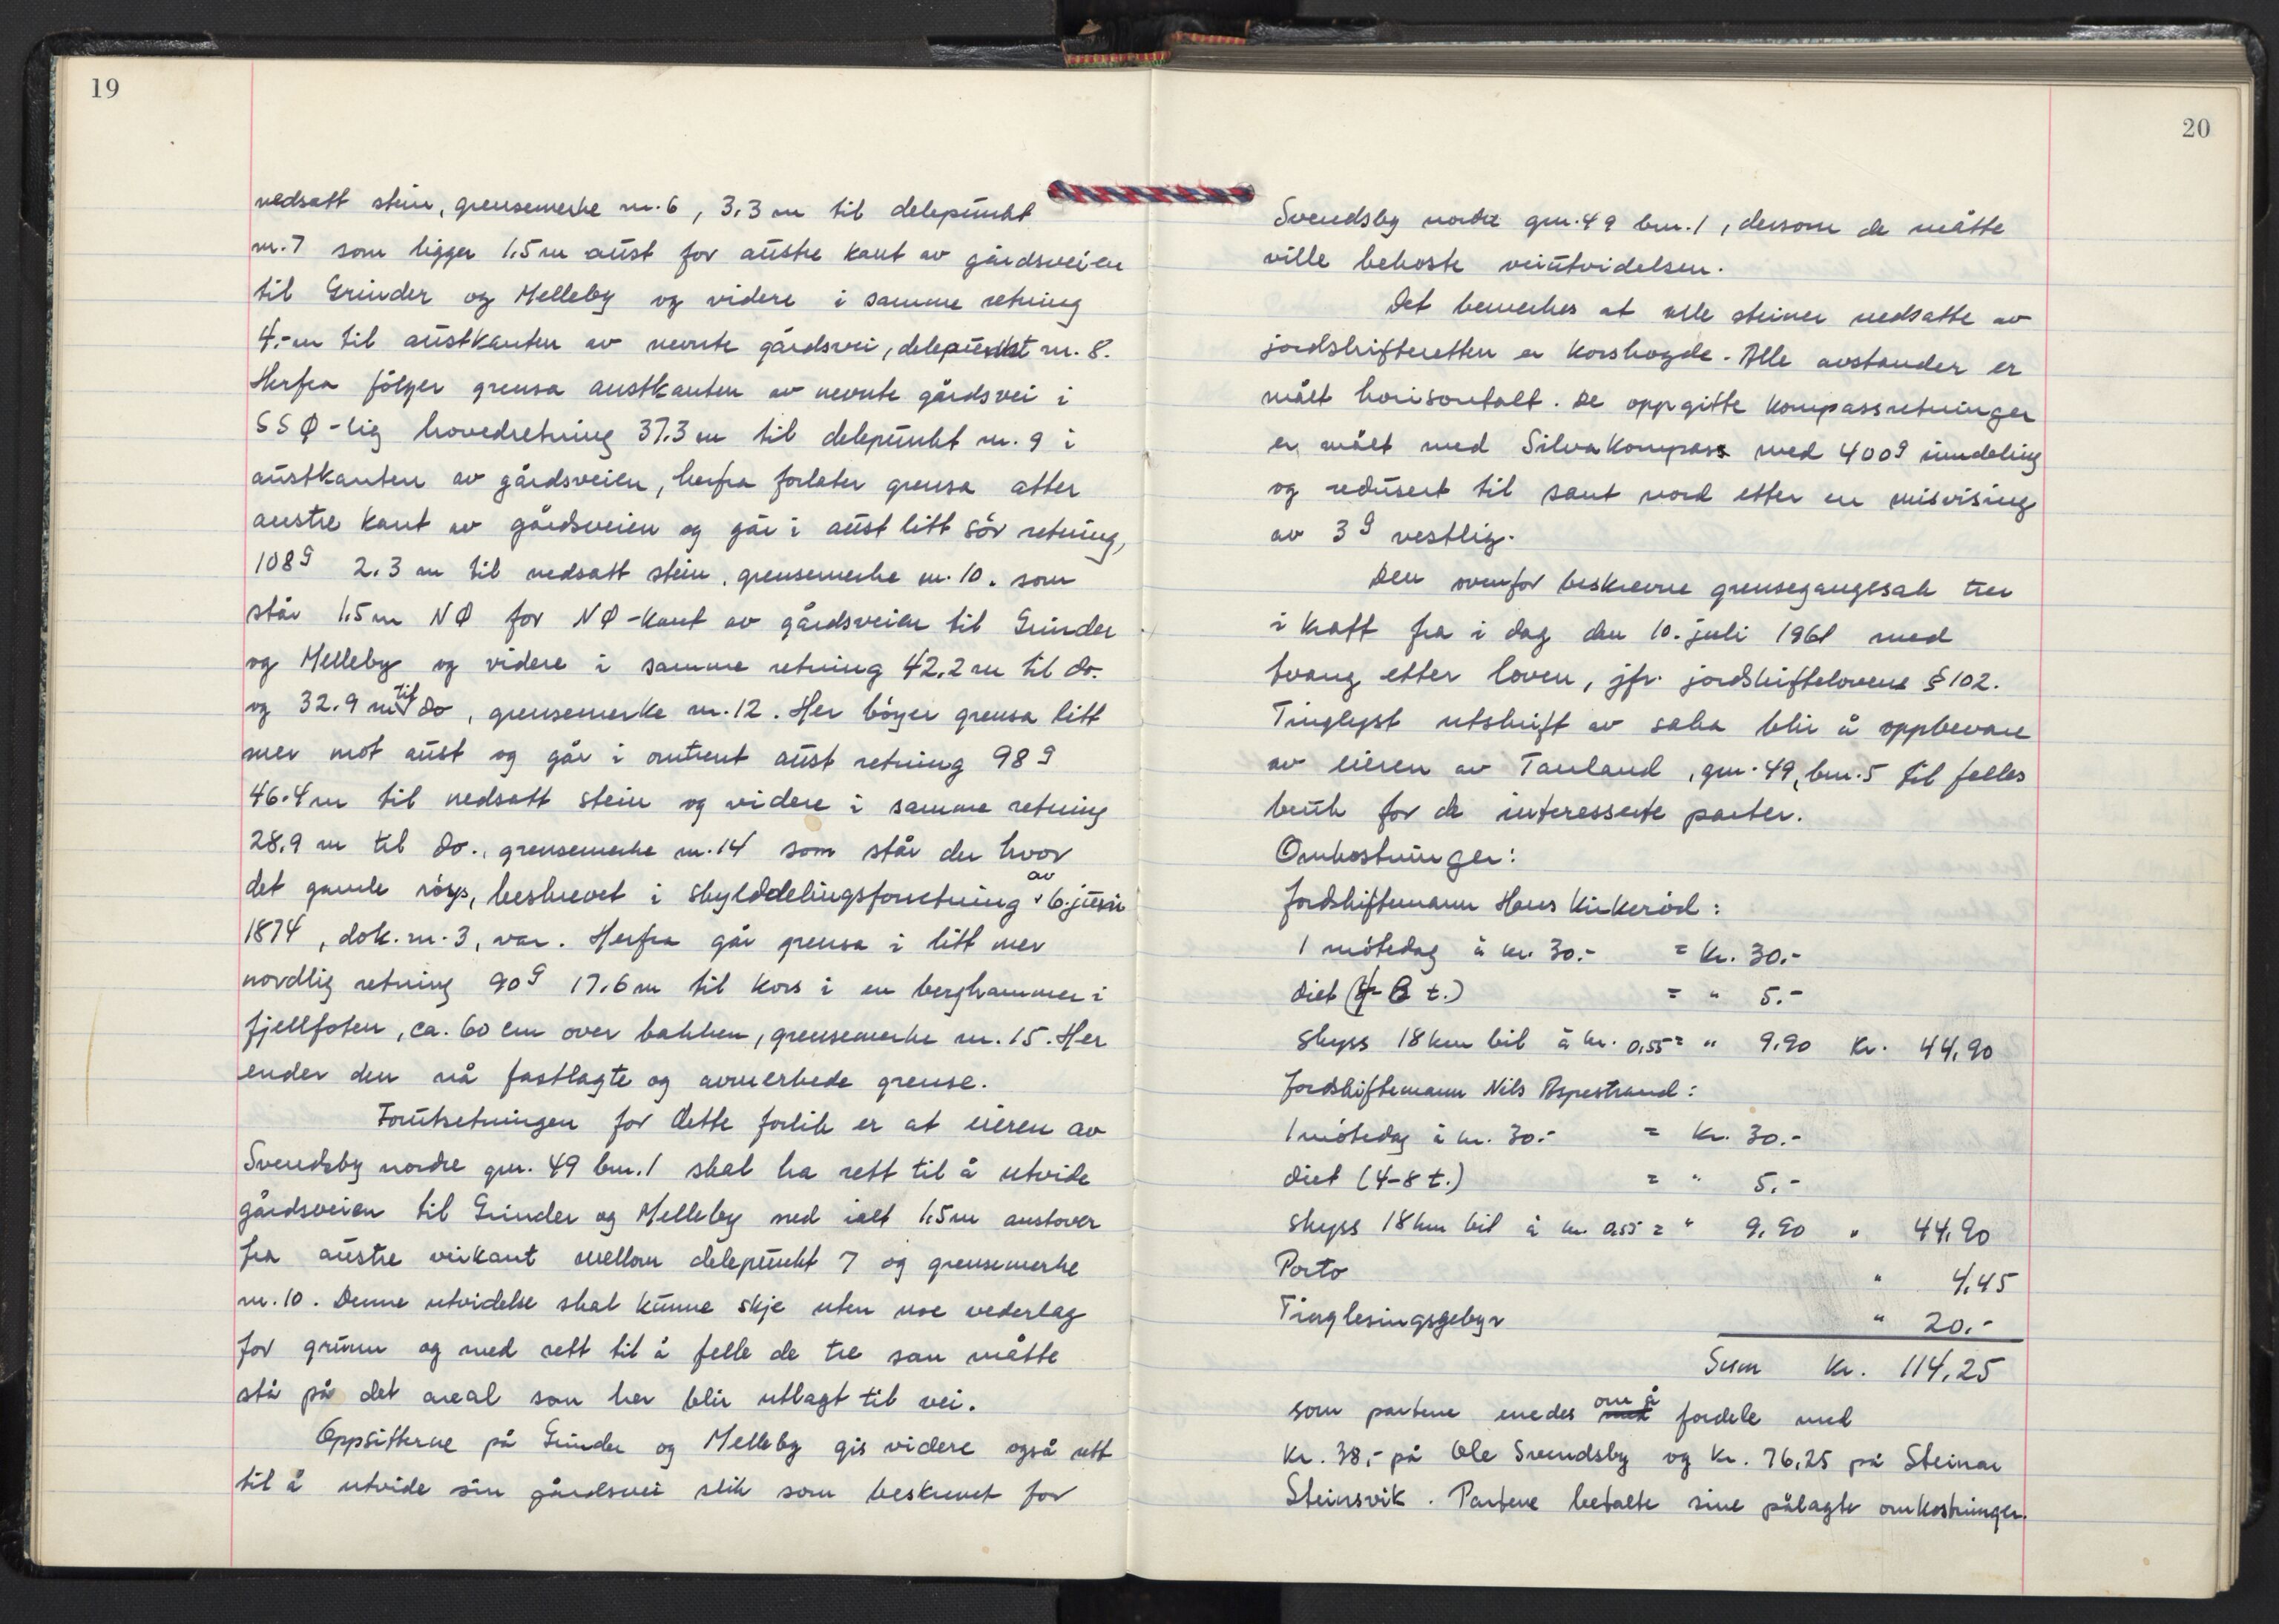 19
nedsatt stein, grensemerke nr. 6, 3.3 m til delepunkt
nr. 7 som ligger 1.5 m aust for austre kant av gårdsveien
til Grinder og Melleby og videre i samme retning
4.- m til austkanten av nevnte gårdsvei, delepunkt nr. 8.
Herfra følger grensa austkanten av nevnte gårdsvei i
SSØ-lig hovedretning 37.3 m til delepunkt nr. 9 i
austkanten av gårdsveien, herfra forlater grensa atter
austre kant av gårdsveien og går i aust litt sør retning,
108 g 2.3 m til nedsatt stein, grensemerke nr. 10. som
står 1.5 m NØ for NØ-kant av gårdsveien til Grinder
og Melleby og videre i samme retning 42.2 m til do.
og 32.9 m til do, grensemerke nr. 12. Her bøyer grensa litt
mer mot aust og går i omtrent aust retning 98 g
46.4 m til nedsatt stein og videre i samme retning
28.9 m til do., grensemerke nr. 14 som står der hvor
det gamle røys, beskrevet i skylddelingsforretning av 6. juni
1874, dok. nr. 3, var. Herfra går grensa i litt mer
nordlig retning 90 g 17.6 m til kors i en berghammer i
fjellfoten, ca. 60 cm over bakken, grensemerke nr. 15. Her
ender den nå fastlagte og avmerkede grense.
Forutsetningen for dette forlik er at eieren av
Svendsby nordre gnr. 49 bnr. 1 skal ha rett til å utvide
gårdsveien til Grinder og Melleby med ialt 1.5 m austover
fra austre veikant mellom delepunkt 7 og grensemerke
nr. 10. Denne utvidelse skal kunne skje uten noe vederlag
for grunn og med rett til å felle de tre som måtte
stå på det areal som her blir utlagt til vei.
Oppsitterne på Grinder og Melleby gis videre også rett
til å utvide sin gårdsvei slik som beskrevet for
20
Svendsby nordre gnr. 49 bnr. 1, dersom de måtte
ville bekoste veiutvidelsen.
Det bemerkes at alle steiner nedsatte av
jordskifteretten er korshogde. Alle avstander er
målt horisontalt. De oppgitte kompassretninger
er målt med Silvakompass med 400 g inndeling
og redusert til sant nord etter en misvising
av 3 g vestlig.
Den ovenfor beskrevne grensegangssak trer
i kraft fra i dag den 10. juli 1961 med
tvang etter loven, jfr. jordskiftelovens § 102.
Tinglyst utskrift av saka blir å oppbevare
av eieren av Tanland, gnr. 49, bnr. 5 til felles
bruk for de interesserte parter.
Omkostninger:
Jordskiftemann Hans Kirkerød:
1 møtedag à kr. 30.- = kr. 30.-
diet (4-8 t.) = " 5.-
Skyss 18 km bil à kr. 0,55 = " 9,90 Kr. 44,90
Jordskiftemann Nils Aspestrand:
1 møtedag à kr. 30.- = kr. 30.-
diet (4-8 t.) = " 5.-
Skyss 18 km bil à kr. 0,55 = " 9,90 " 44,90
Porto " 4,45
Tinglesingsgebyr " 20.-
Sum kr. 114,25
som partene enedes om å fordele med
kr. 38,- på Ole Svendsby og kr. 76,25 på Steinar
Steinsvik. Partene betalte sine pålagte omkostninger.